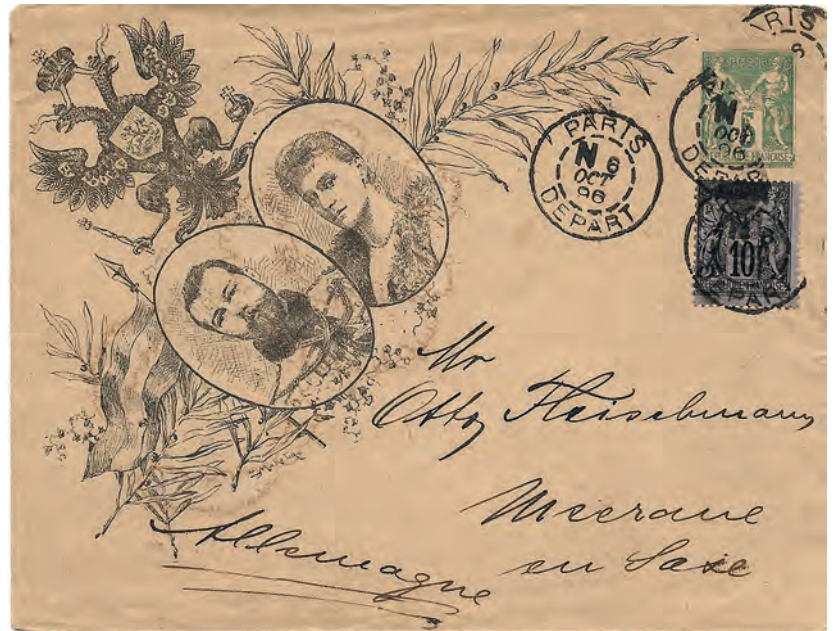 PARIS
N 6
OCT
96
DEPART
PARIS
N
OCT
96
DEPART
10
Mr
Otto Fleischmann
Meerane
en Saxe
Allemagne